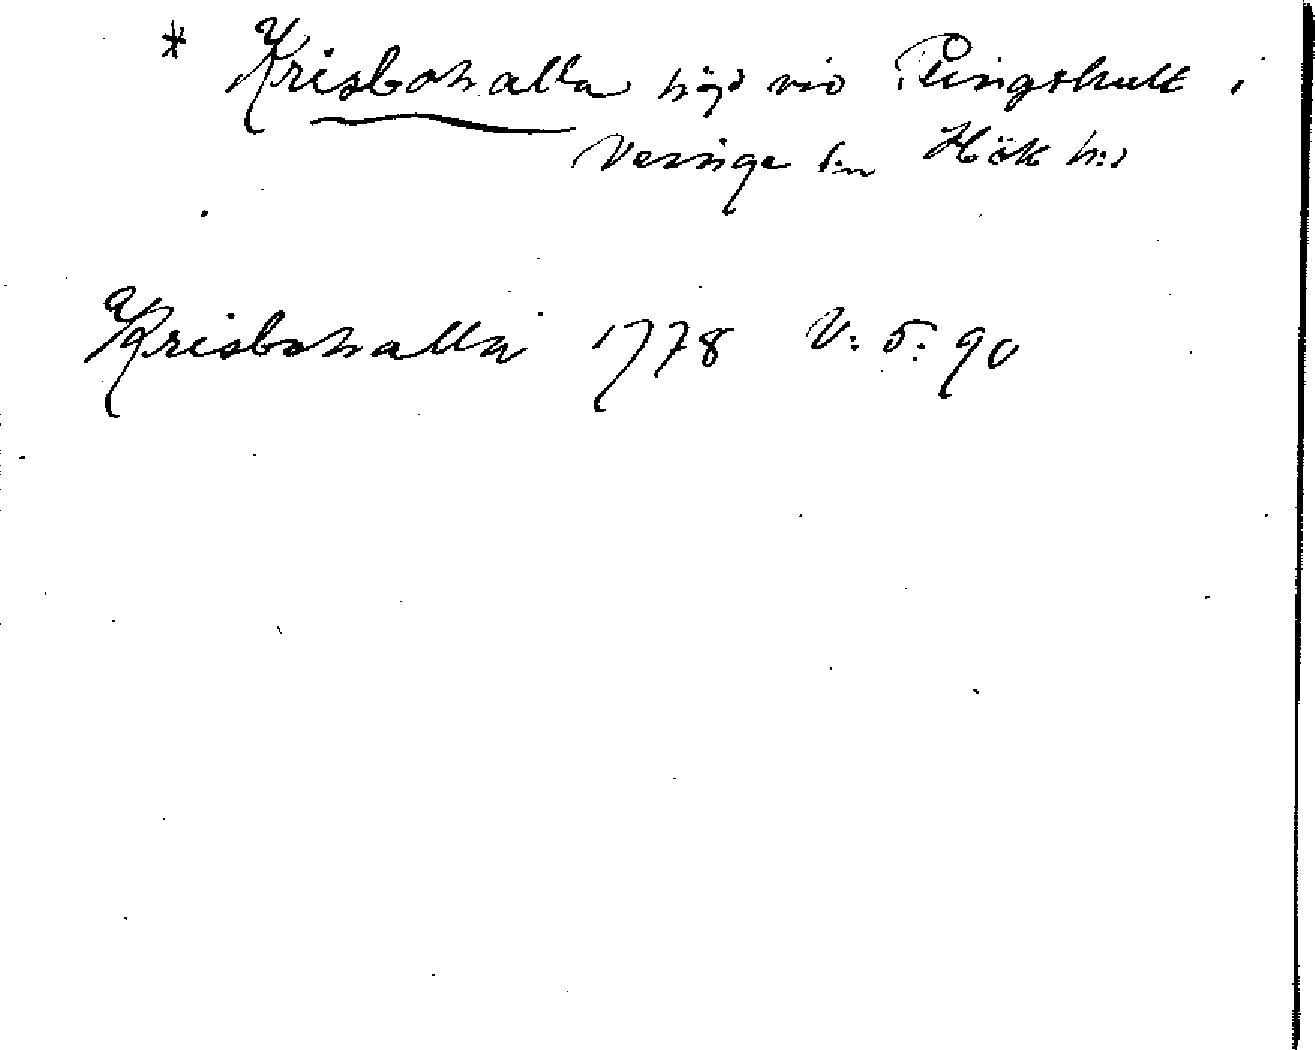 * Krisbohalla höjd vid Plingshult i
Veinge s:n Hök h:d
Krisbohalla 1778 V: 5: 90